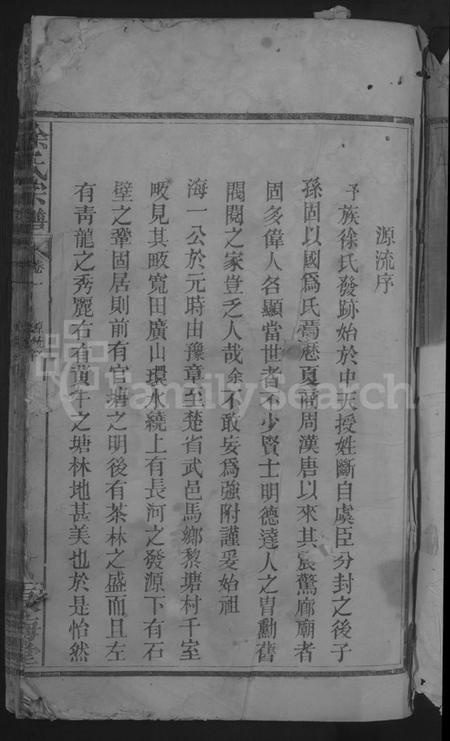 源流序
予族徐氏發跡始於中天授姓斷自虞臣分封之後子
孫固以國為氏焉歷夏商周漢唐以來其震驚廊廟者
固多偉人名顯當世者不少賢士明德達人之胄勳舊
閥閱之家豈乏人哉余不敢妄為強附謹爰始祖
海一公於元時由豫章至楚省武邑馬鄉黎塘村千室
畈見其畈寬田廣山環水繞上有長河之發源下有石
壁之鞏固居則前有官塘之明後有茶林之盛而且左
有靑龍之秀麗右有黃牛之塘林地甚美也於是怡然
徐氏宗譜
卷一
FamilySearch